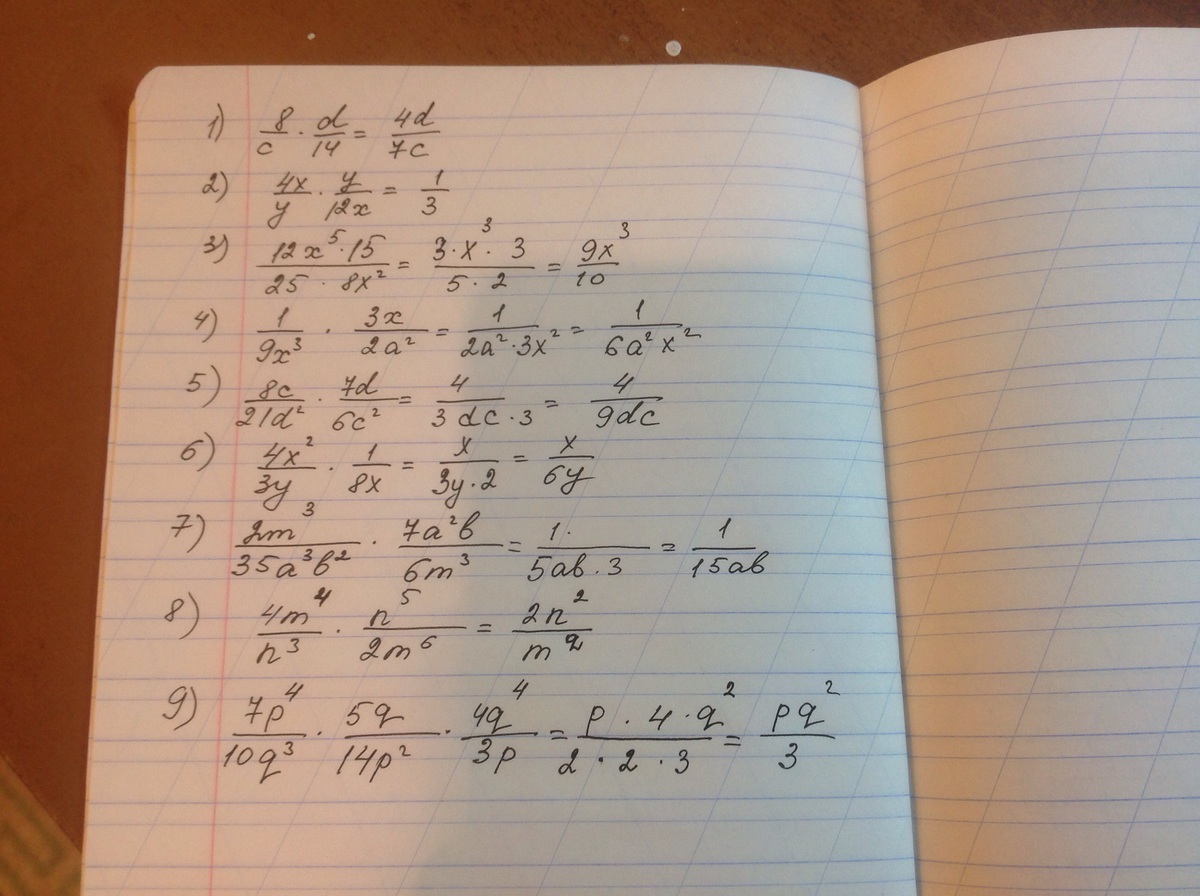 1) 8/c · d/14 = 4d/7c
2) 4x/y · y/12x = 1/3
3) 12x⁵·15/25·8x² = 3·x³·3/5·2 = 9x³/10
4) 1/9x³ · 3x/2a² = 1/2a²·3x² = 1/6a²x²
5) 8c/21d² · 7d/6c² = 4/3dc·3 = 4/9dc
6) 4x²/3y · 1/8x = x/3y·2 = x/6y
7) 2m³/35a³b² · 7a²b/6m³ = 1·/5ab·3 = 1/15ab
8) 4m⁴/n³ · n⁵/2m⁶ = 2n²/m²
9) 7p⁴/10q³ · 5q/14p² · 4q⁴/3p = p·4·q²/2·2·3 = pq²/3